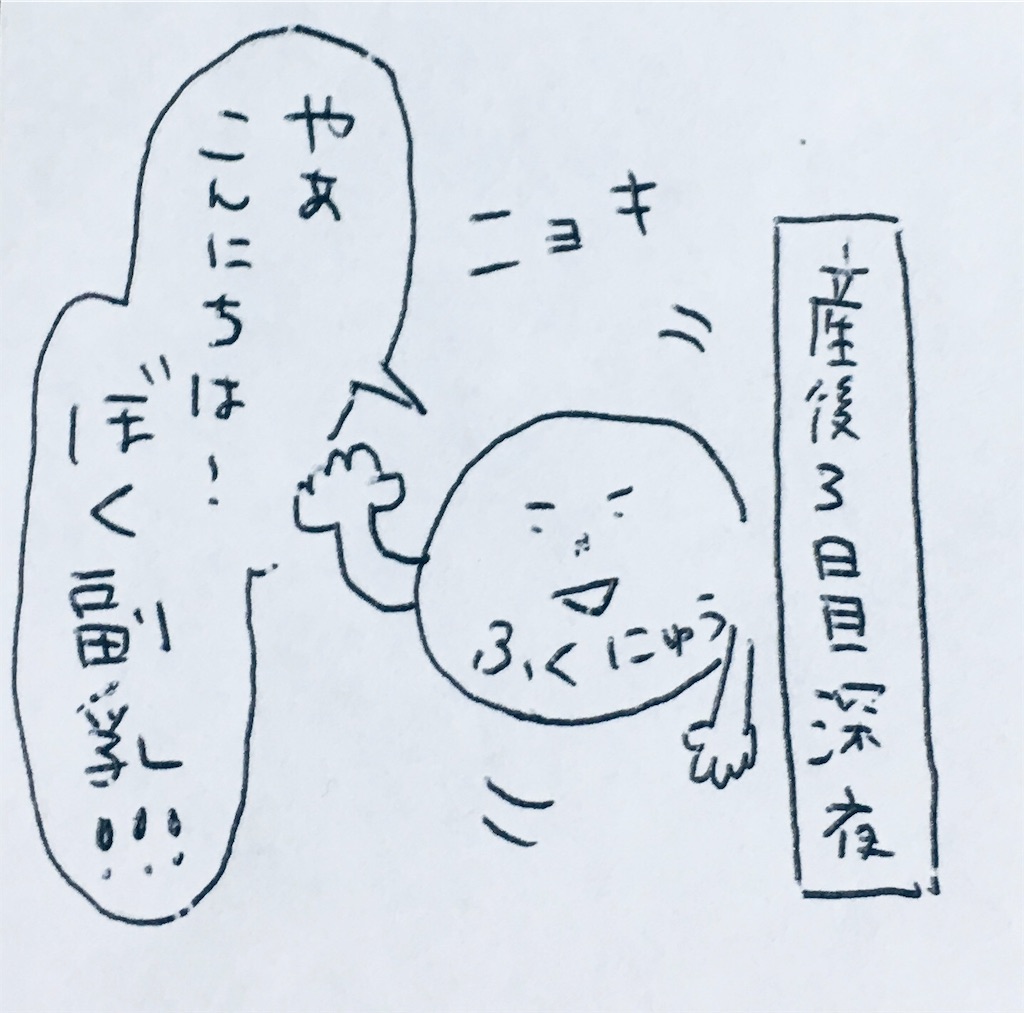 産後3日目深夜
ニョキ
やあ
こんにちは!
ぼく副乳!!!
ふくにゅう